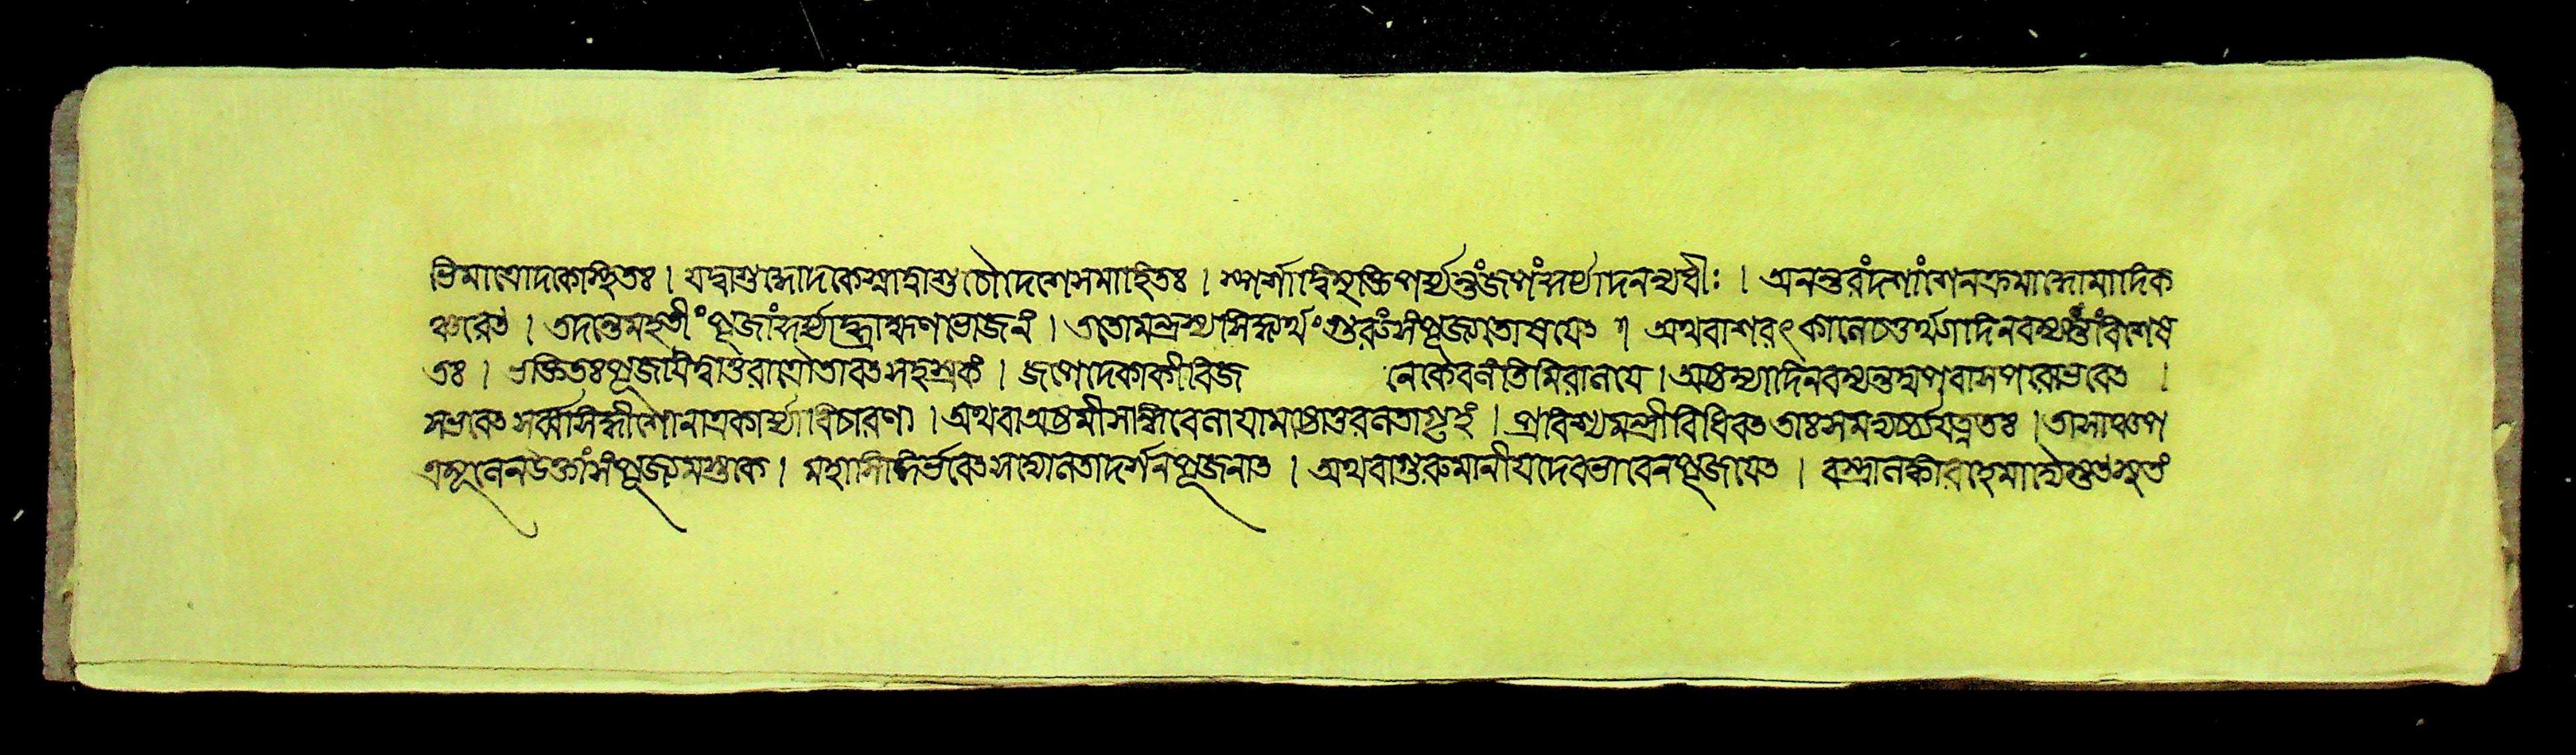 ভিমাত্রোদকেস্থিতঃ। যদ্বাশুদ্ধোদকেস্নাত্বাশুচৌদেশেসমাহিতঃ। স্পর্শাদ্বিমুক্তিপর্য্যন্তংজপংকুর্য্যাদনন্যধীঃ। অনন্তরংদশাংশেনক্রমাদ্ধোমাদিক
ঞ্চরেৎ। তদন্তেমহতীংপূজাংকুর্য্যাদ্ব্রাহ্মণভোজনং। ততোমন্ত্রস্যসিদ্ধ্যর্থংগুরুংসংপূজ্যতোষয়েৎ। অথবাশরৎকালেচতুর্থ্যাদিনবম্যন্তংবিশেষ
তঃ। ভক্তিতঃপূজয়িত্বাতুরাত্রৌতাবৎসহস্রকং। জপেদেকাকীবিজ নেকেবলংতিমিরালয়ে। অষ্টম্যাদিনবম্যন্তমুপবাসপরোভবেৎ।
সভবেৎসর্ব্বসিদ্ধীশোনাত্রকার্য্যাবিচারণা। অথবাঅষ্টমীসন্ধিবেলায়ামষ্টোত্তরলতাগৃহং। প্রবিশ্যমন্ত্রীবিধিবৎতাঃসমভ্যর্চ্চ্যযত্নতঃ। তাসাঞ্চপ
ত্রমূলেনউক্তাংসংপূজ্যমস্তকে। মহাসিদ্ধির্ভবেৎসদ্যোলতাদর্শনপূজনাৎ। অথবাগুরুমানীয়দেবভাবেনপূজয়েৎ। বস্ত্রালঙ্কারহেমাদ্যৈঃ